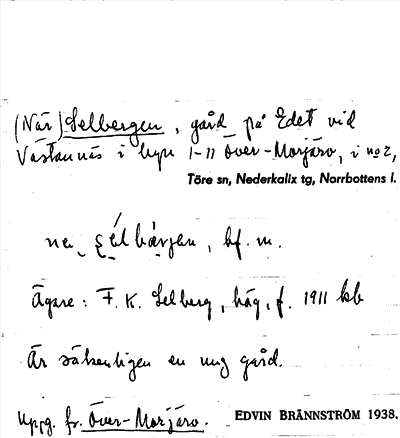 (När) Selbergen, gård på Edet vid
Västannäs i byn 1-11 Över-Morjärv, i no 2,
Töre sn, Nederkalix tg, Norrbottens l.
bf. m.
Ägare: F. K. Selberg, häg, f. 1911 bb
Är säkerligen en ung gård.
Uppg. fr. Över-Morjärv.
EDVIN BRÄNNSTRÖM 1938.